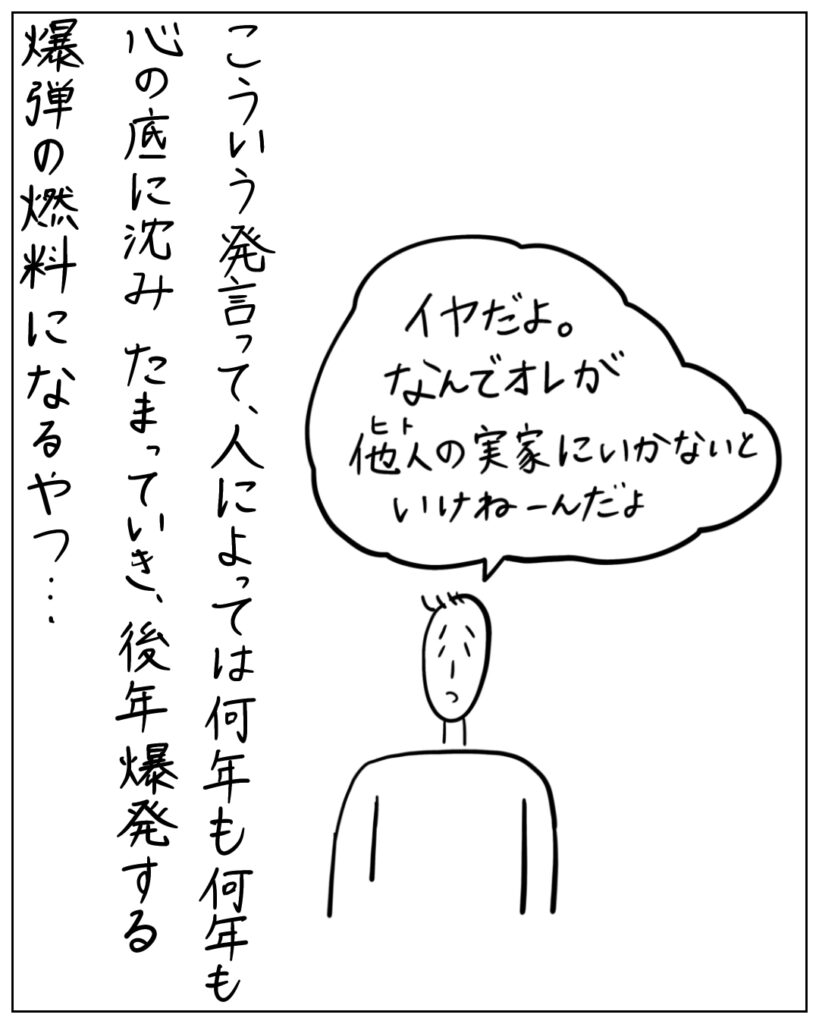 イヤだよ。
なんでオレが
他人の実家にいかないと
ヒト
いけねーんだよ
こういう発言って、人によっては何年も何年も
心の底に沈み たまっていき、後年爆発する
爆弾の燃料になるやつ…